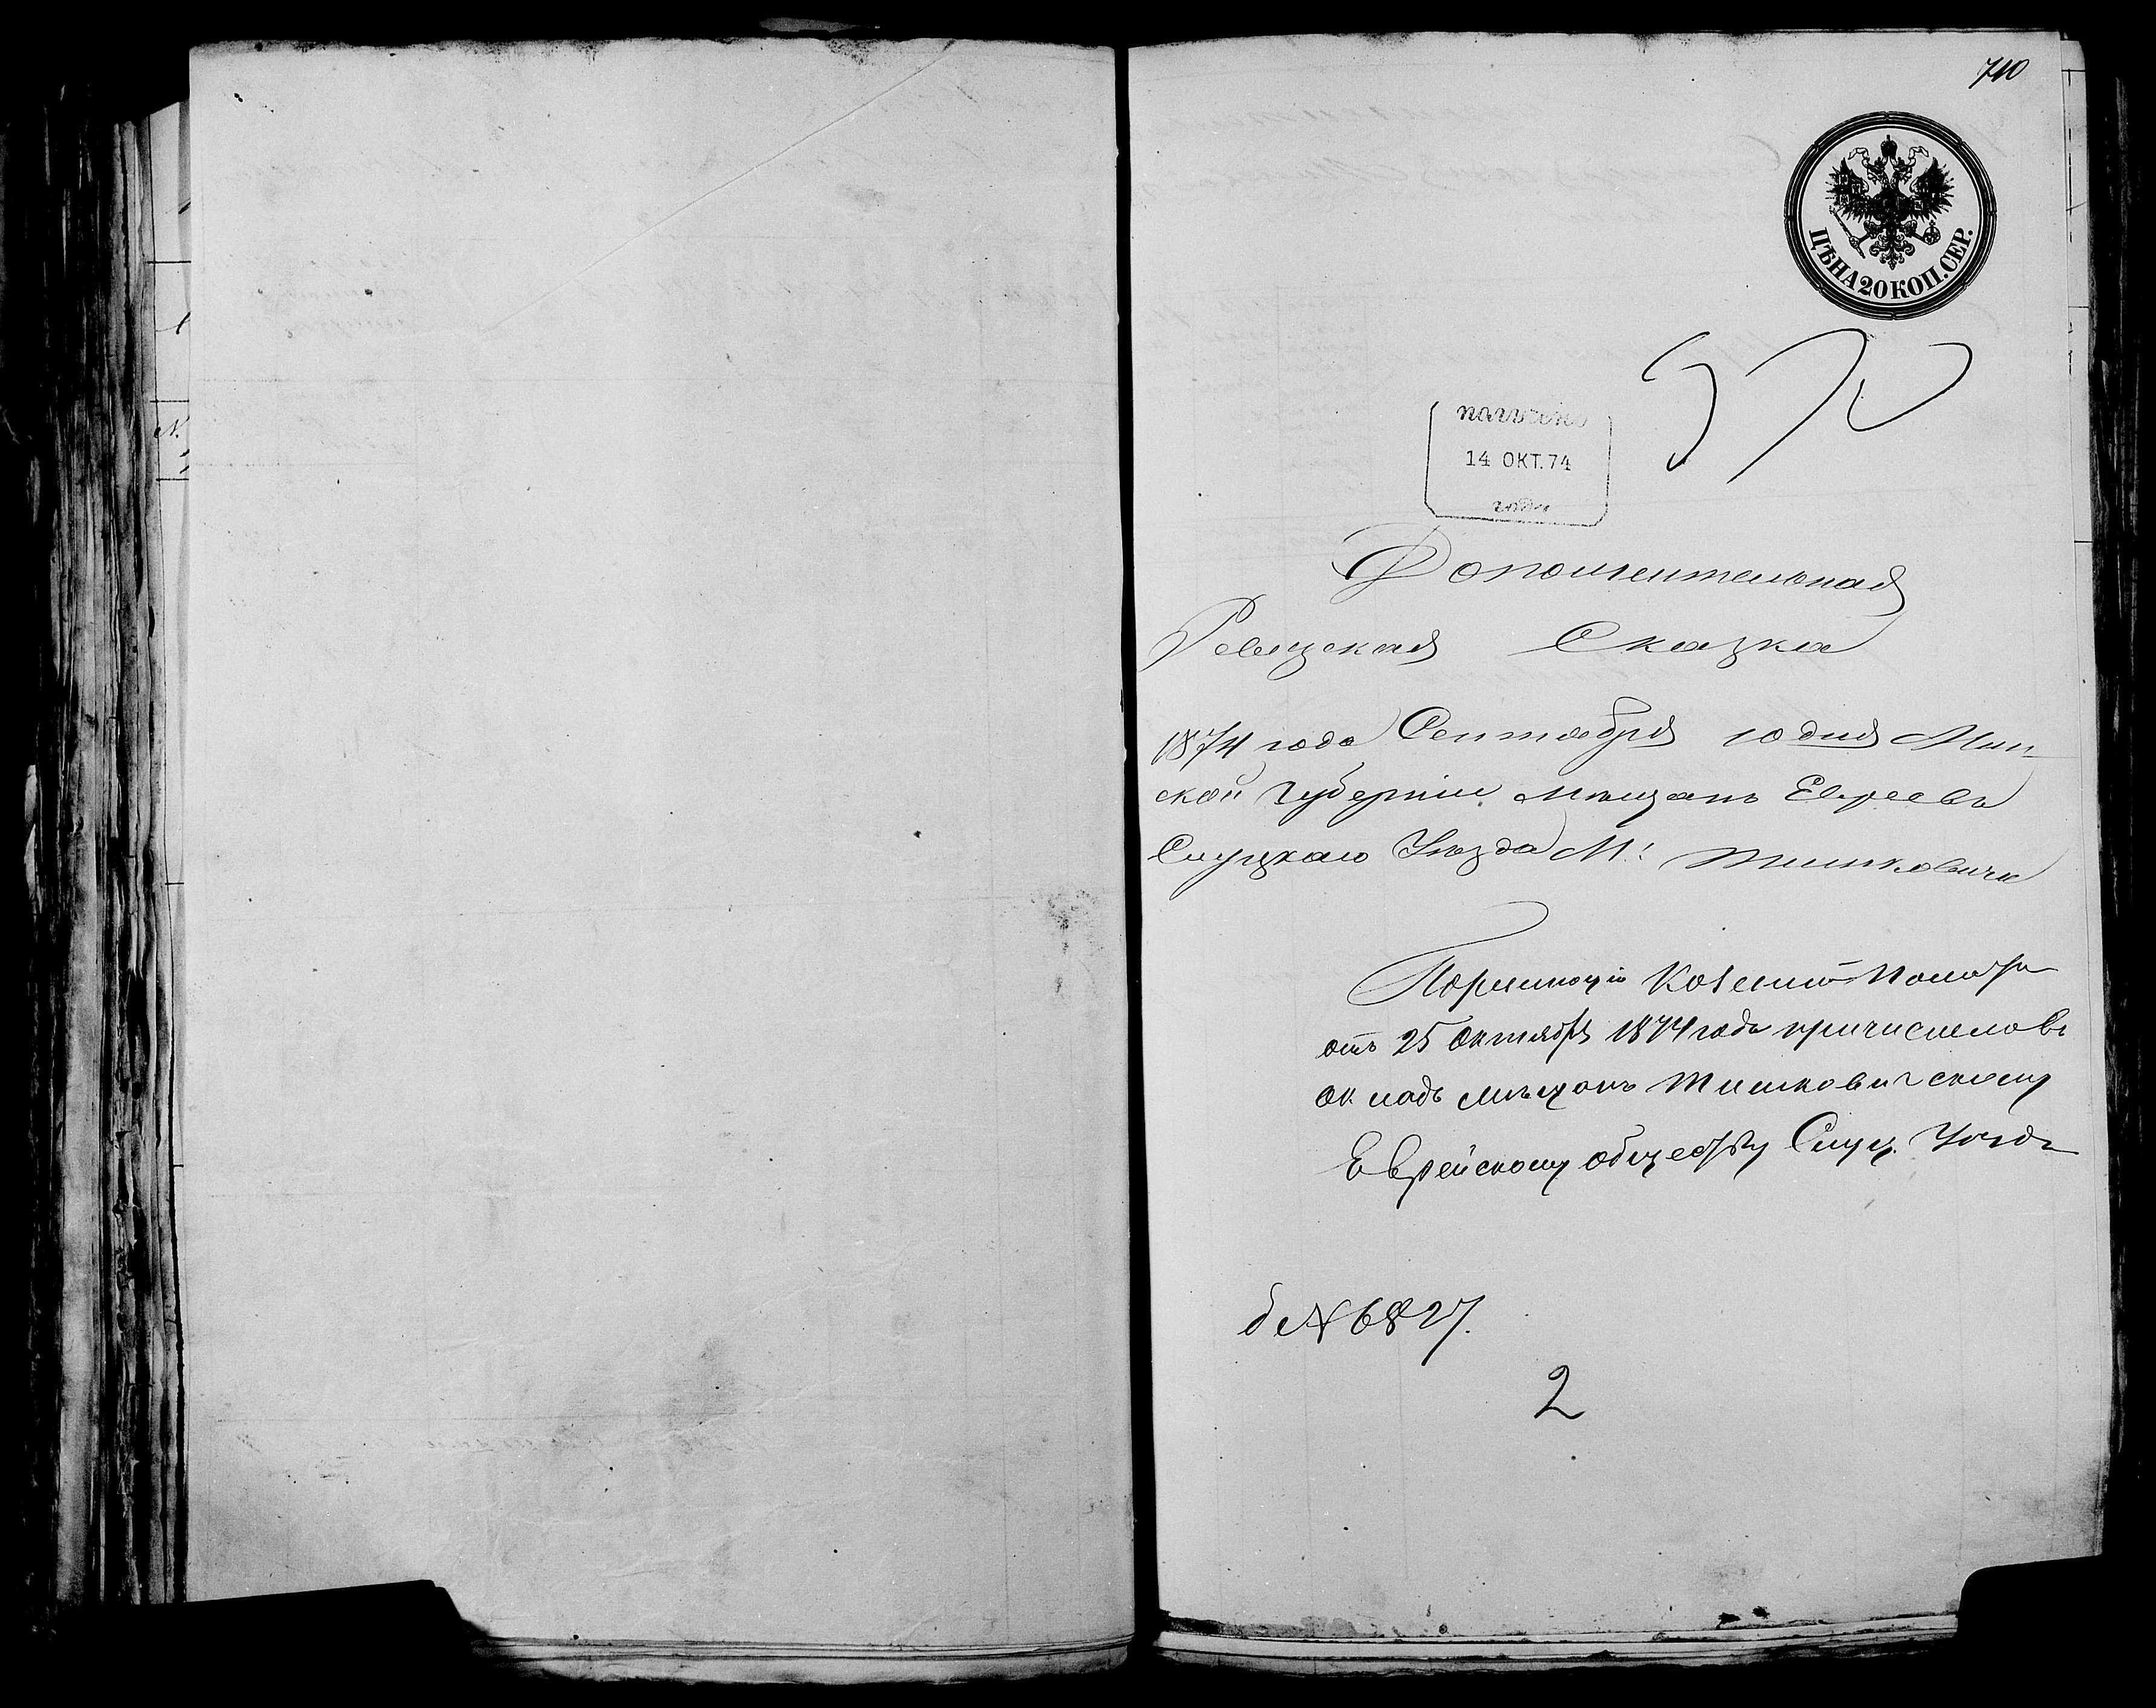 710
ЦѢНА 20 КОП. СЕР.
получено
14 ОКТ. 74
года
Дополнительная
Ревизская Сказка
1874 года Сентября 10 дня Мин-
ской Губерніи мѣщанъ Евреевъ
Слуцкаго Уѣзда М: Тимковичи
Казенной Палаты
отъ 25 Октября 1874 года причислено въ
окладъ мѣщанъ Тимковичскому
Еврейскому обществу Слуц. Уѣзда
№ 6827.
2